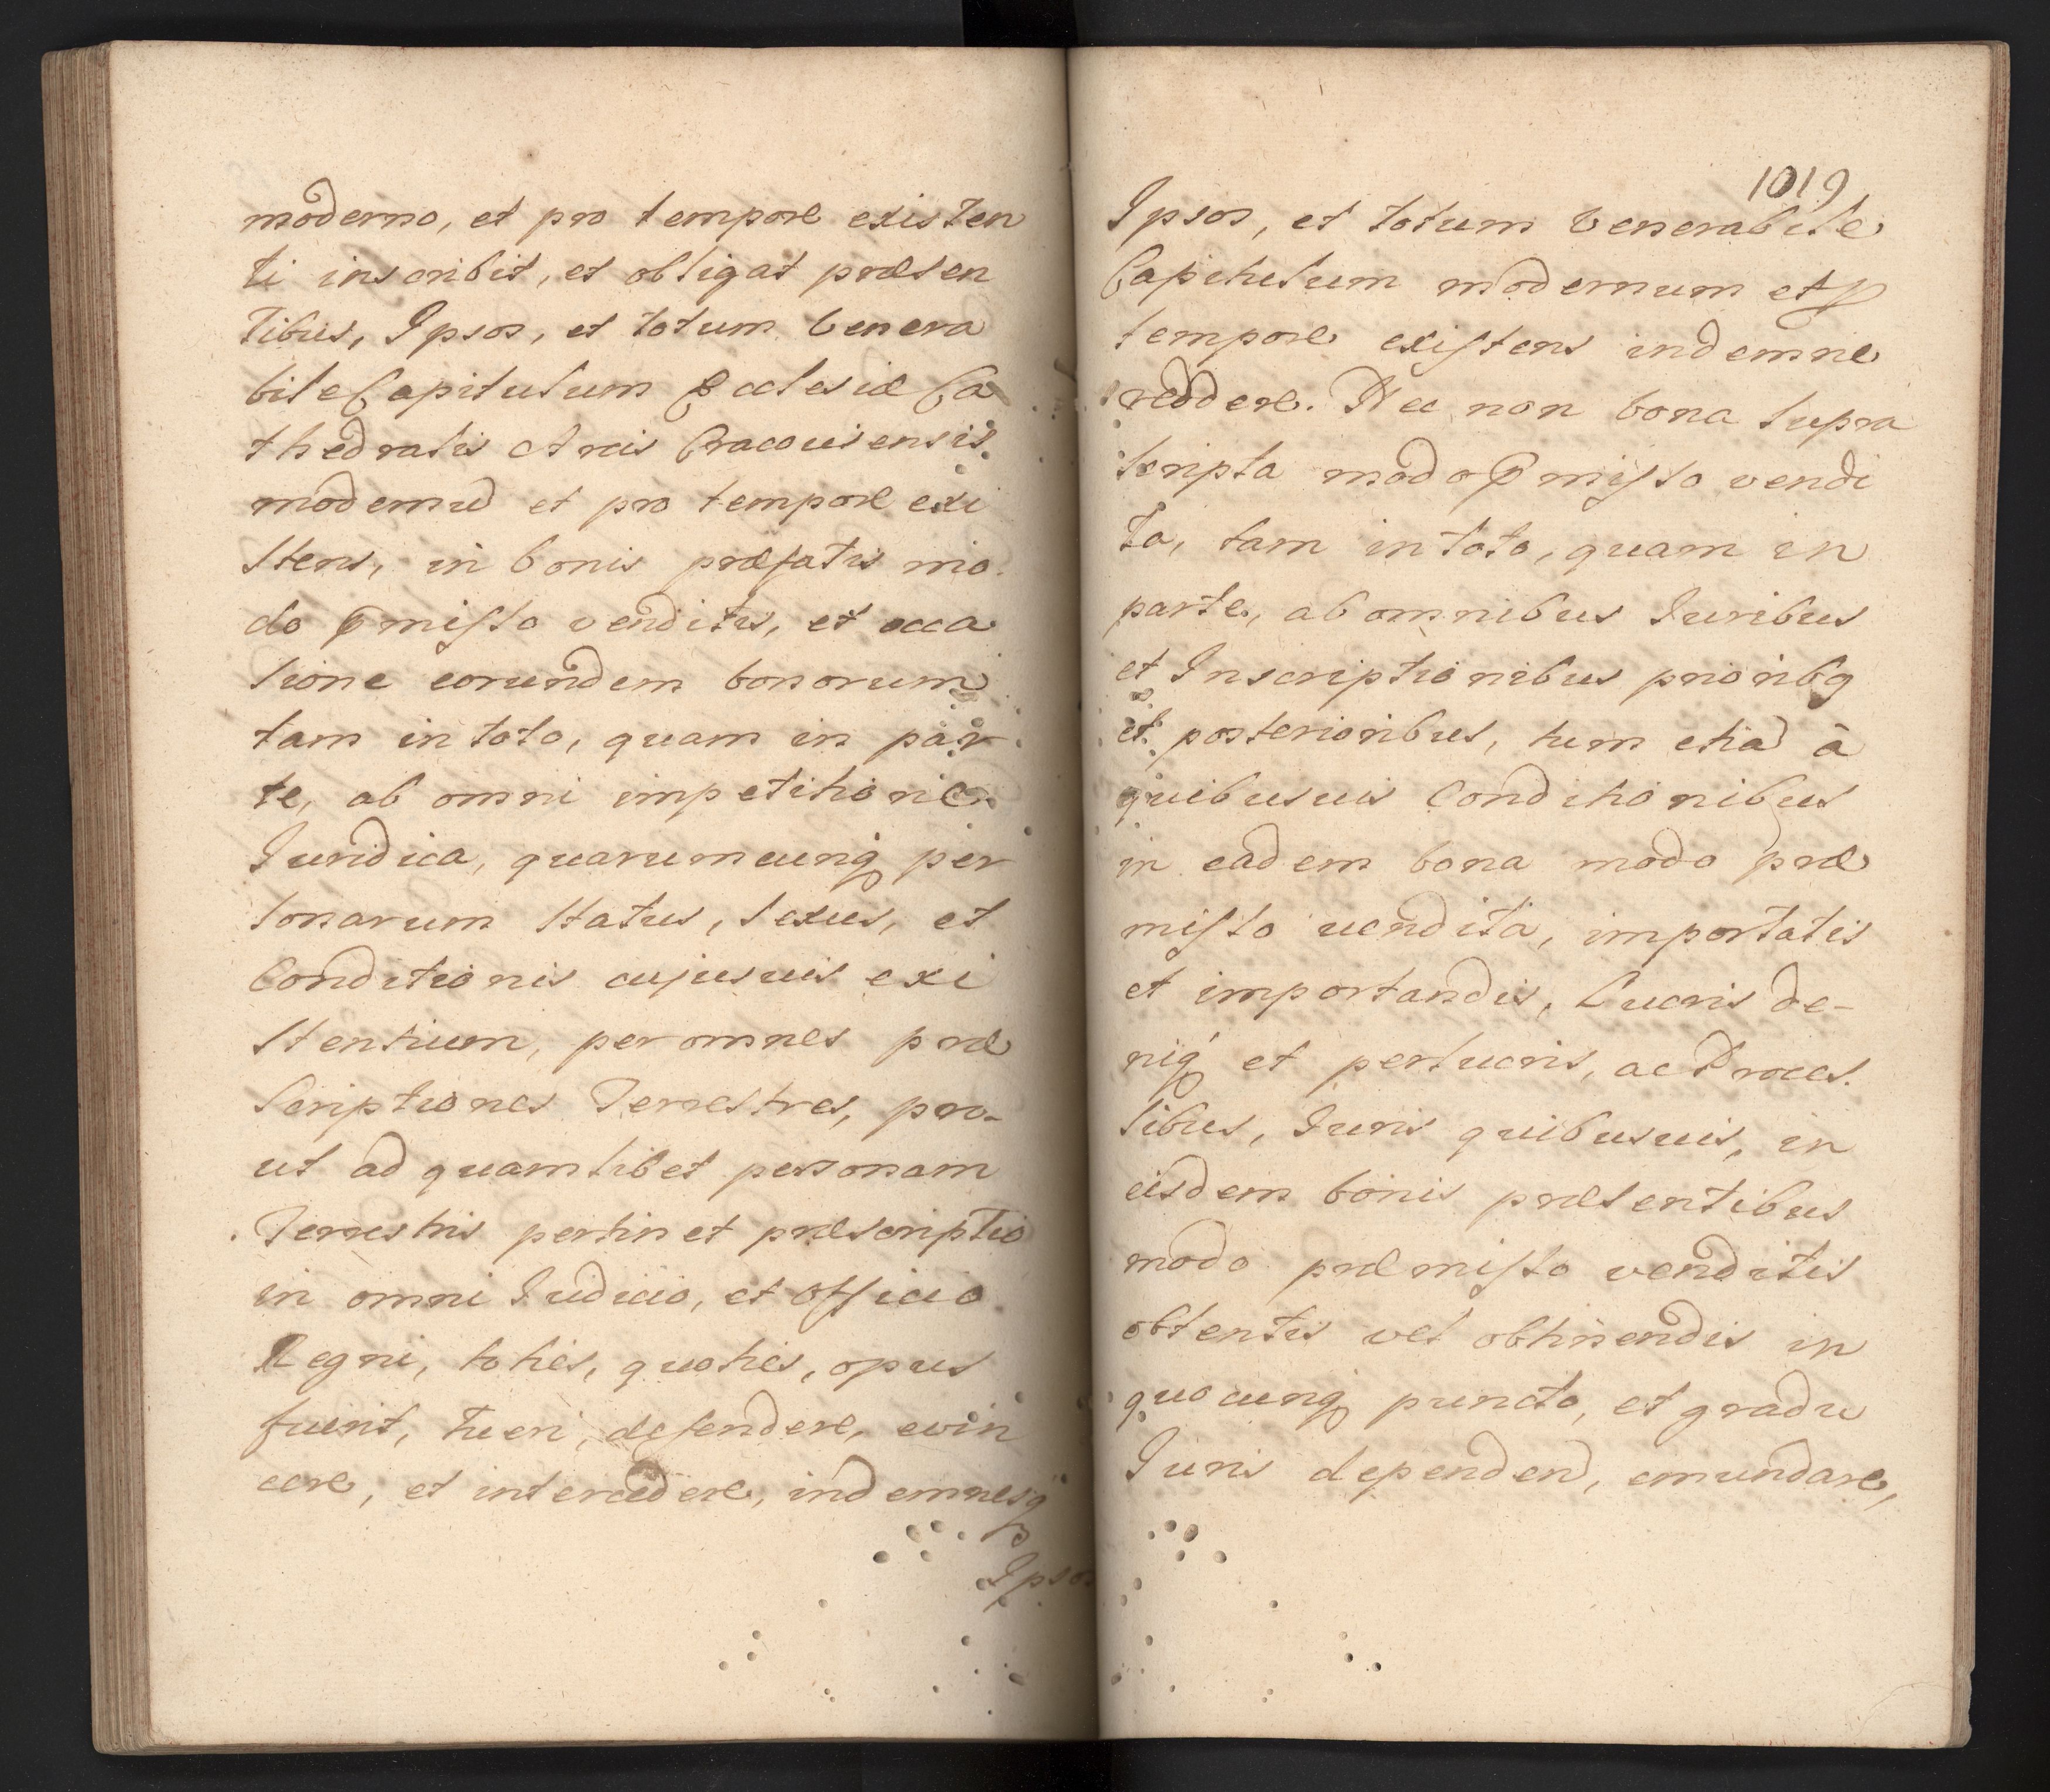 moderno, et pro tempore existen
ti inscribit, et obligat præsen
tibus, Ipsos, et totum Venera
bile Capitulum Ecclesiæ Ca
thedralis Arcis Cracoviensis
modernu et pro tempore exi
stens, in bonis præfatis mo
do p̄miſso venditis, et occa
sione eorundem bonorum
tam in toto, quam in par
te, ab omni impetitione
Juridica, quarumcunq, per
sonarum status, sexus, et
Conditionis cujusuis exi
stentium, per omnes præ
scriptiones Terrestres, pro-
ut ad quamlibet personam
Terrestris pertinet præscriptio
in omni Judicio, et Officio
Regni, toties, quoties, opus
fuerit, tueri, defendere, evin
cere, et intercedere, indemnesq
Ipsos
1019
Ipsos, et totum Venerabile
Capitulum modernum et p
tempore exiſtens indemne
reddere. Nec non bona supra
scripta modo p̄miſso vendi
ta, tam in toto, quam in
parte, ab omnibus Juribus
et Inscriptionibus prioribq
et posterioribus, tum etia à
quibusuis Conditionibus
in eadem bona modo præ
miſso uendita, importatis
et importandis, Lucris de-
niq, et perlucris, ac Proces.
sibus, Juris quibusuis, in
eisdem bonis præsentibus
modo præmiſso venditis
obtentis vel obtinendis in
quocunq, puncto, et gradu
Juris dependen, emundare,